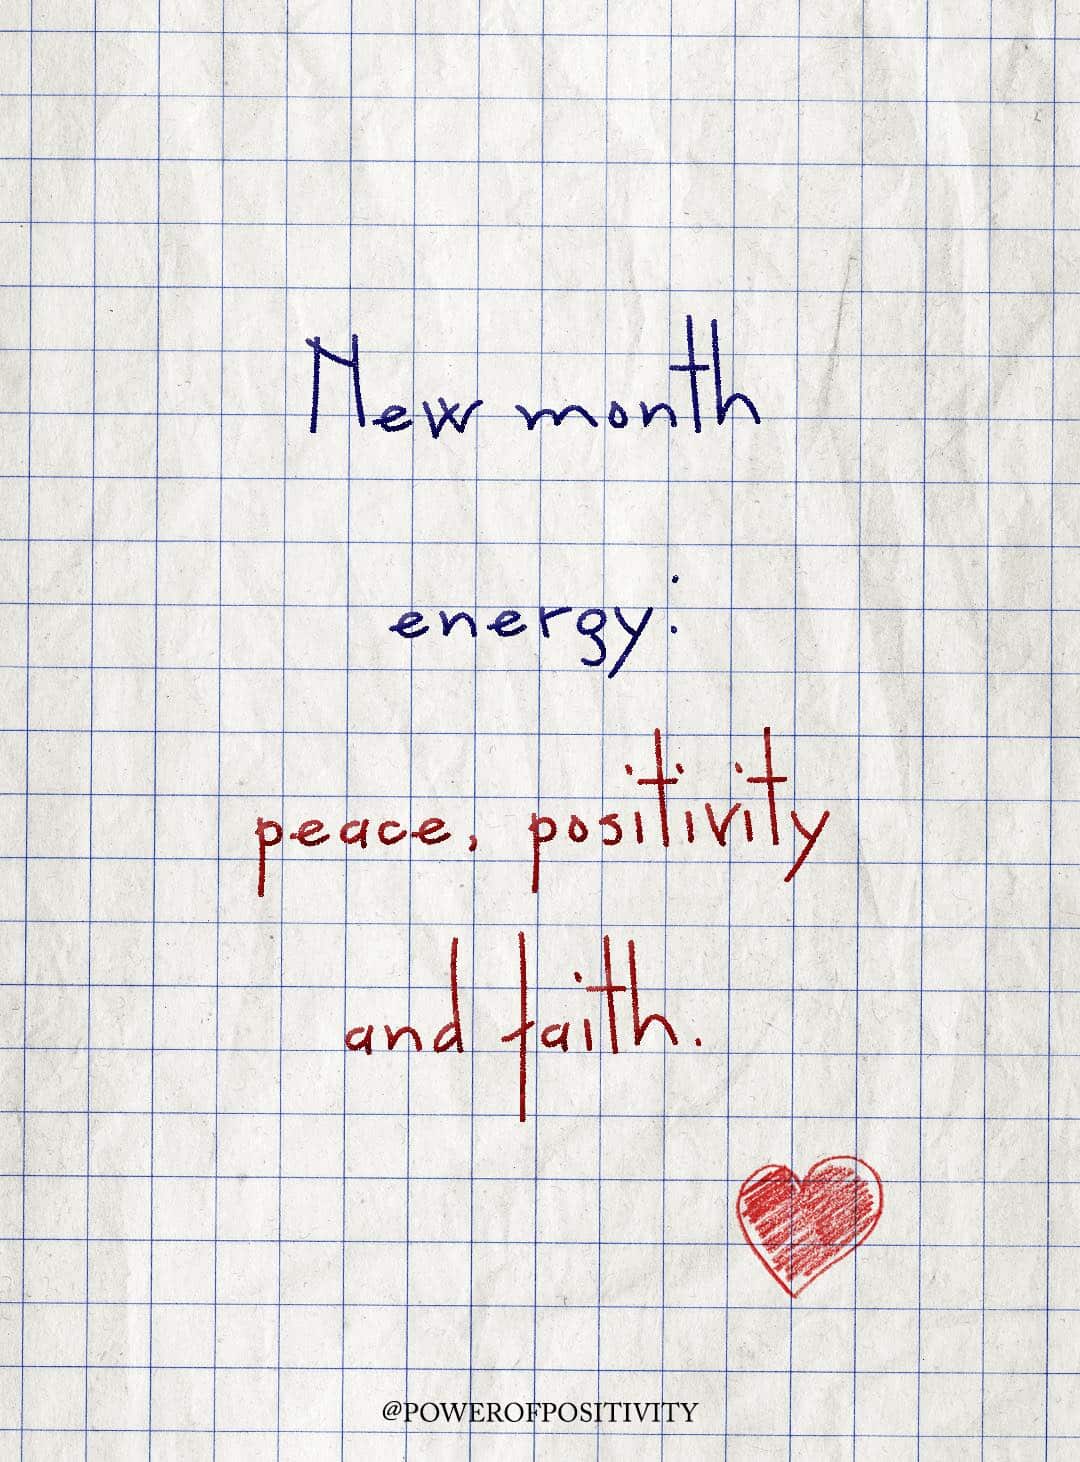 New month
energy:
peace, positivity
and faith.
@POWEROFPOSITIVITY